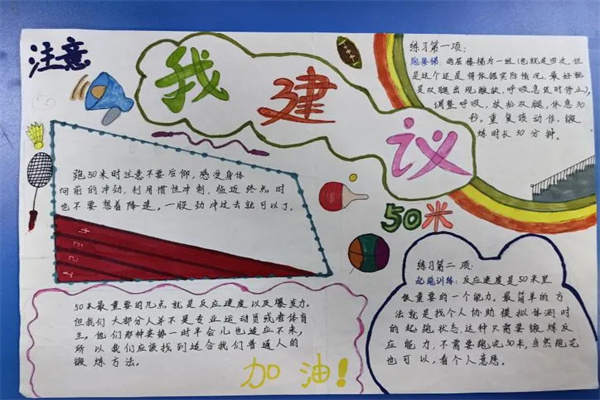 注意
我建议
50米
跑50米时注意不要后仰,感受身体
向前的冲动,利用惯性冲刺,临近终点时
也不要想着降速,一股劲冲过去就可以了。
练习第一项:
跑楼梯:两层楼梯为一组(也就是四次,但
是这个还是得依据实际情况,最好就
是双腿出现酸软,呼吸急促时停止),
调整呼吸,放松双腿,休息30
秒,重复该动作,锻
炼时长30分钟。
50米最重要的几点就是反应速度以及爆发力,
但我们大部分人并不是专业运动员或者体育
生,他们那种姿势一时半会儿也适应不来,
所以我们应该找到适合我们普通人的
锻炼方法。
加油!
练习第二项:
起跑训练:反应速度是50米里
很重要的一个能力。最简单的方
法就是找个人协助模拟体测时
的起跑状态,这种只需要锻炼反
应能力,不需要跑完50米,当然跑完
也可以,看个人意愿。